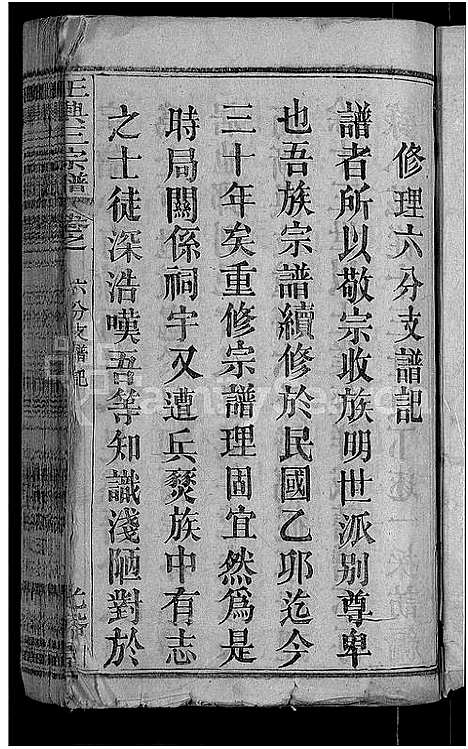 修理六分支譜記
譜者所以敬宗收族明世派别尊卑
也吾族宗譜續修於民國乙卯迄今
三十年矣重修宗譜理固宜然為是
時局關係祠宇又遭兵燹族中有志
之士徒深浩嘆吾等知識淺陋對於
宗譜
卷之一
六分支譜記